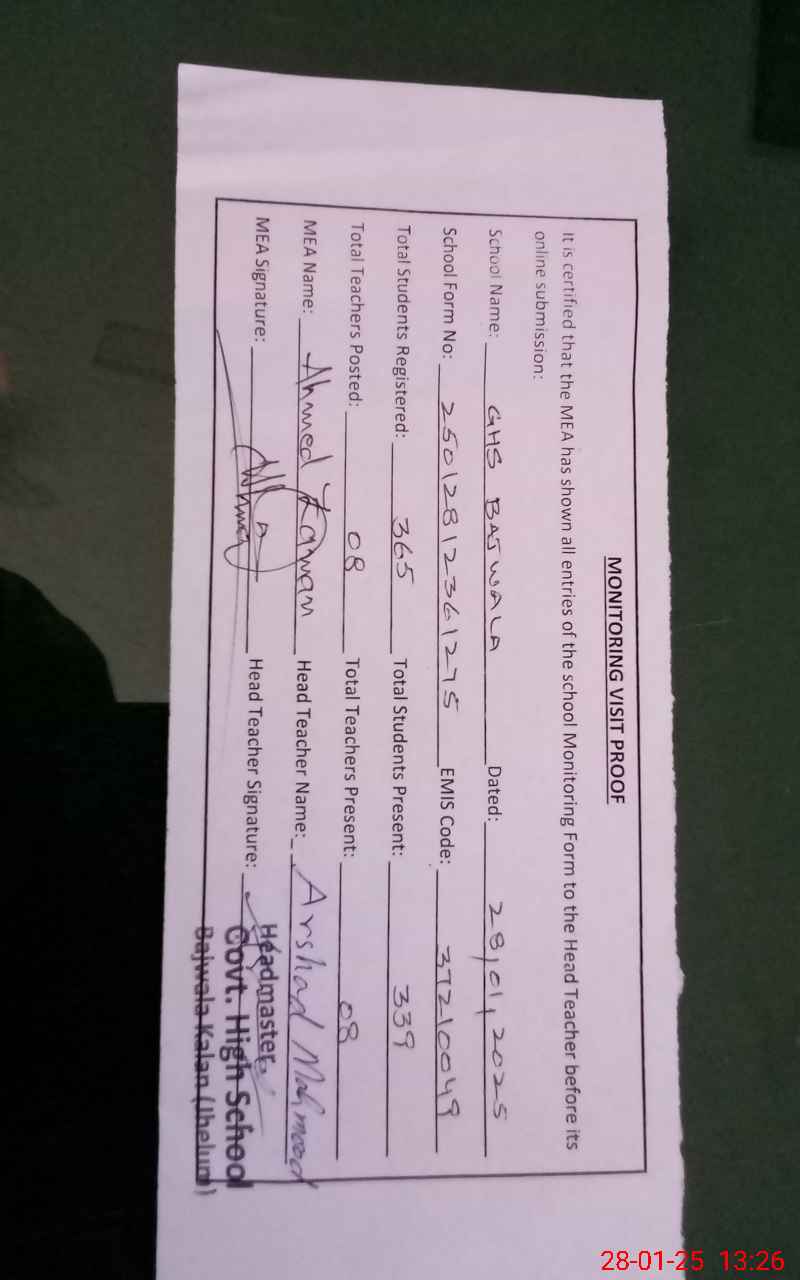 MONITORING VISIT PROOF
It is certified that the MEA has shown all entries of the school Monitoring Form to the Head Teacher before its
online submission:
School Name: GHS BAJWALA Dated: 28,01,2025
School Form No: 25012812361275 EMIS Code: 37210049
Total Students Registered: 365 Total Students Present: 339
Total Teachers Posted: 08 Total Teachers Present: 08
MEA Name: Ahmed Zaman Head Teacher Name: Arshad Mahmood
MEA Signature: Head Teacher Signature:
Headmaster
Govt. High School
Bajwala Kalan (Jhelum)
28-01-25 13:26